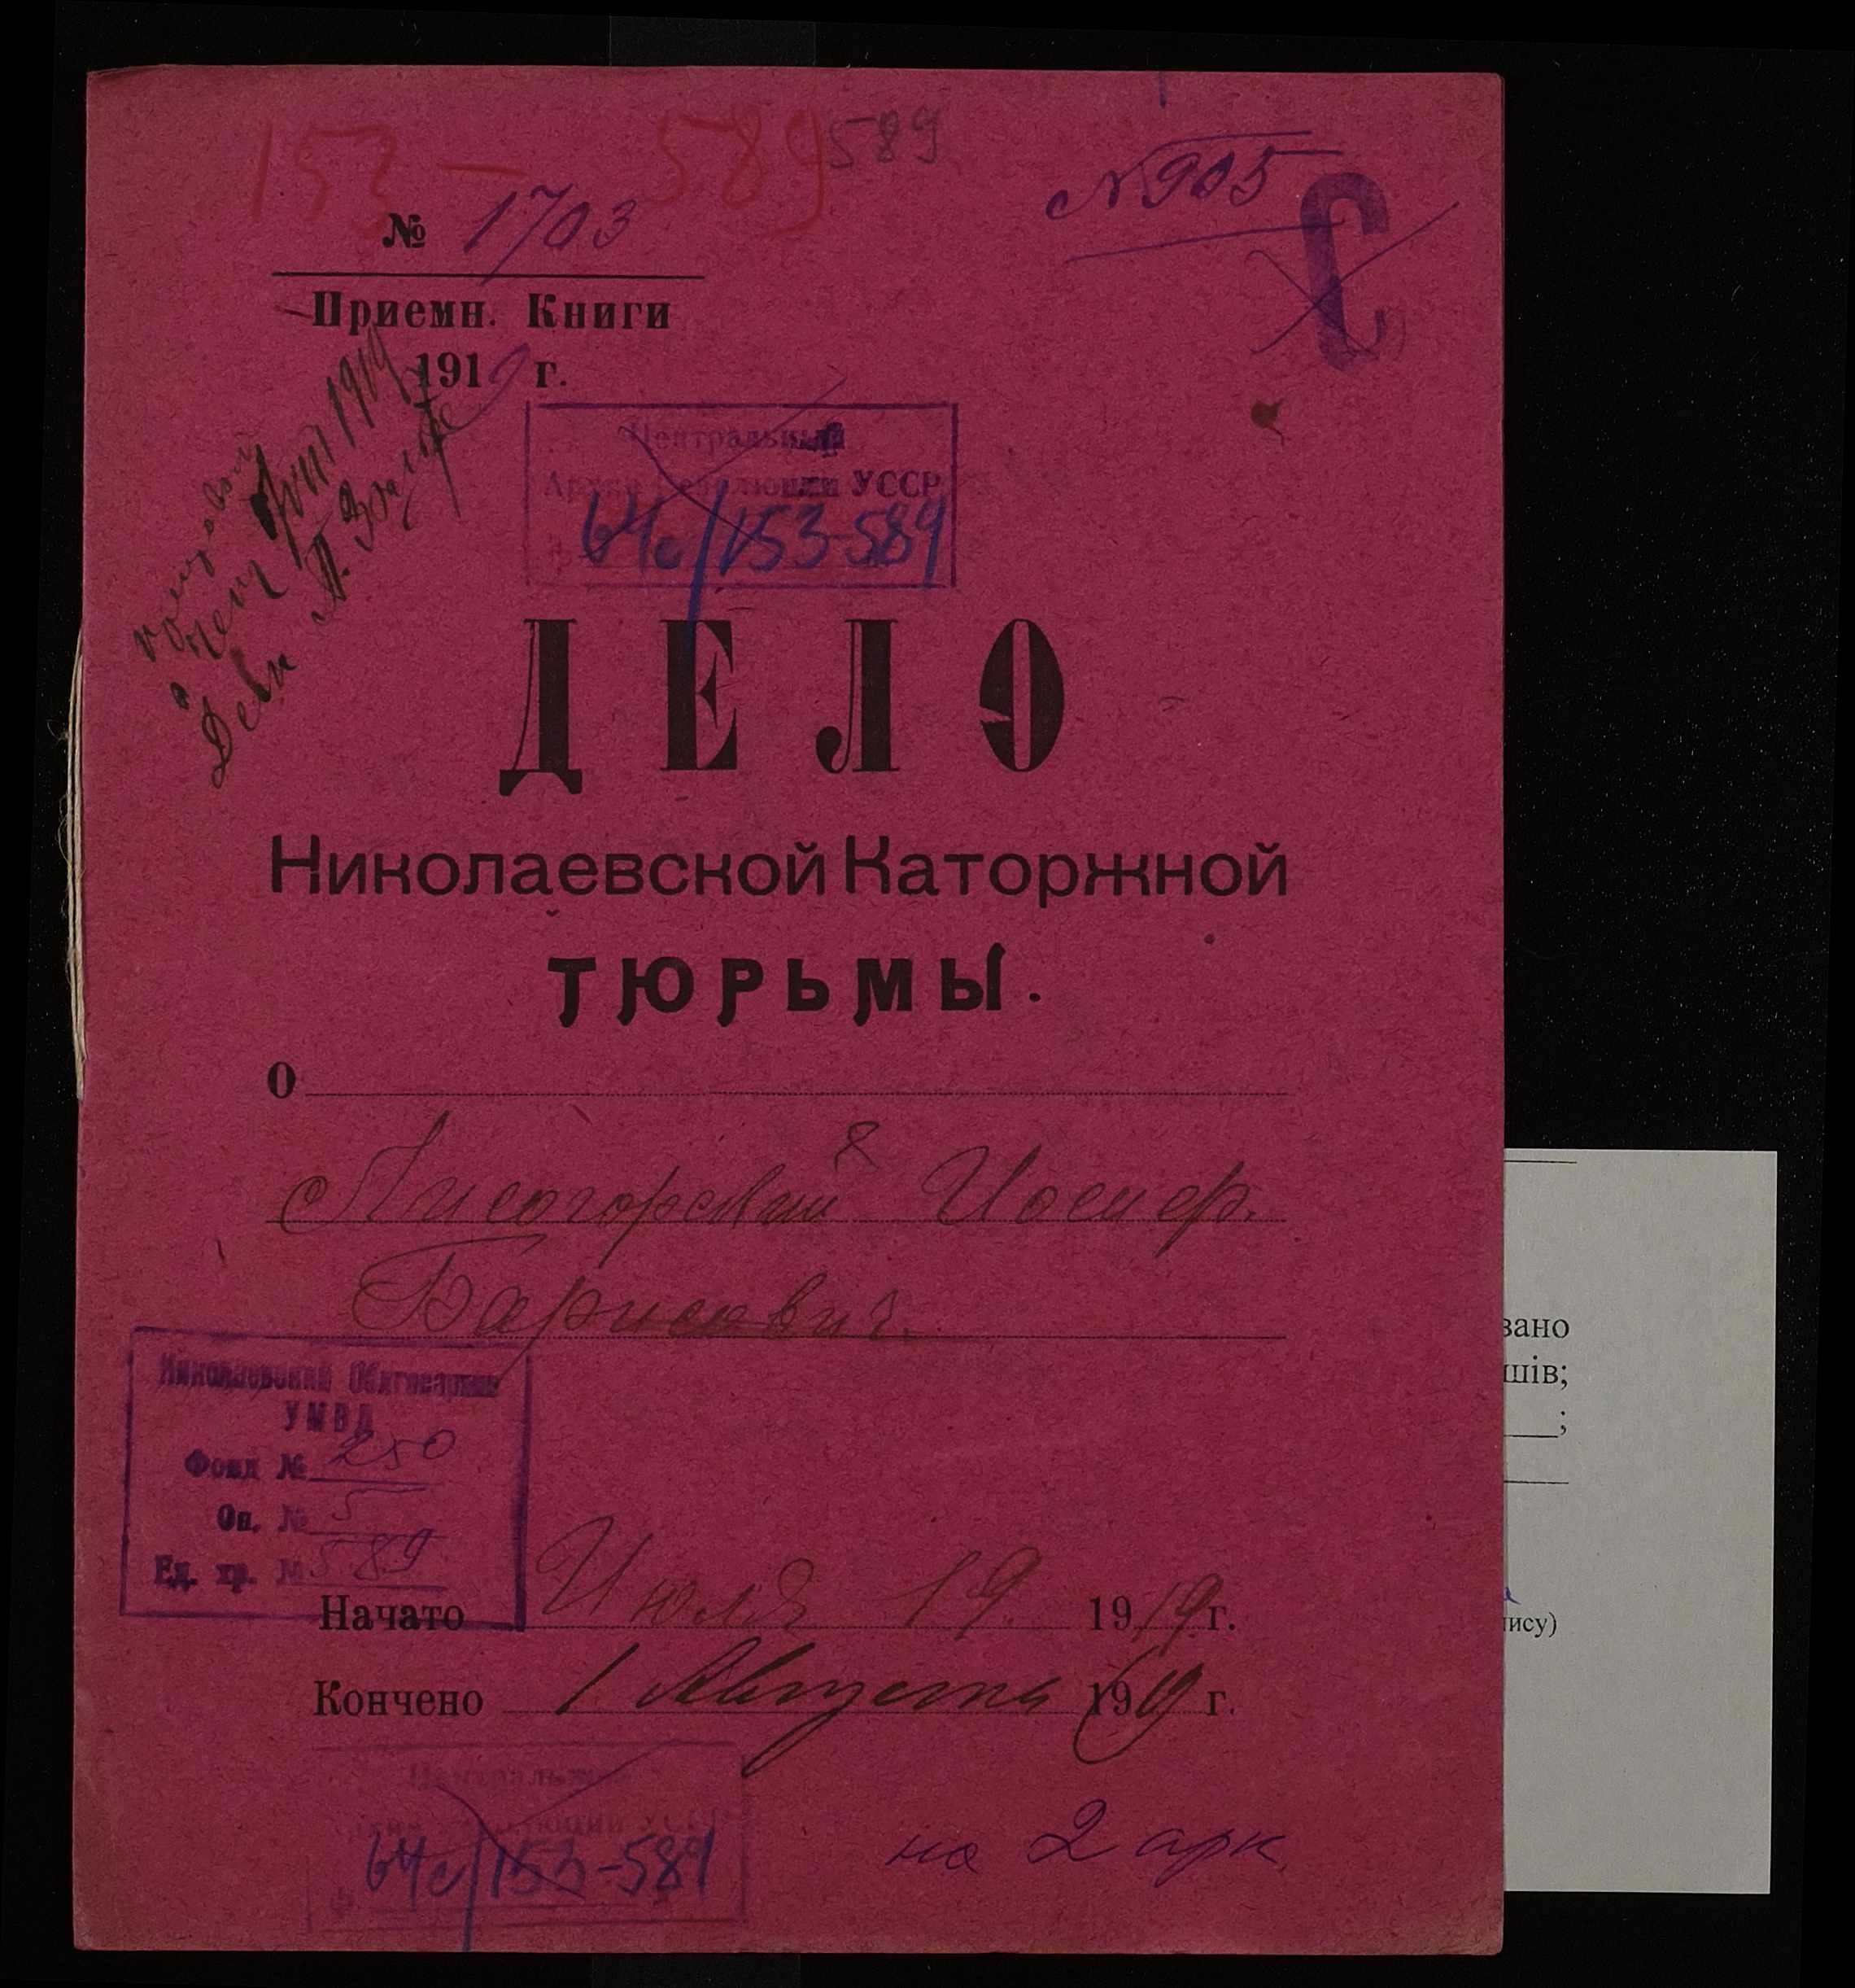 153 — 589 589
№ 905
№ 1703
С
Приемн. Книги
1919 г.
1919
Центральный
Архив Революции УССР
64с/153-589
ДЕЛО
Николаевской Каторжной
ТЮРЬМЫ.
О
Лисогорский Иосиф.
Борисович.
Николаевский Облгосархив
УМВД
Фонд № 250
Оп. № 5
Ед. хр. № 589
Начато Июля 19 1919 г.
Кончено 1 Августа 1919 г.
Центральный
Архив Революции УССР
64с/153-589
на 2 арк.
вано
шів;
;
пису)